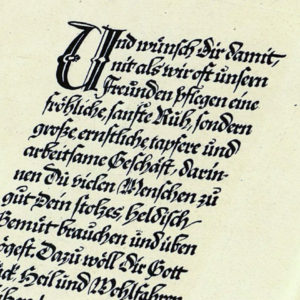 Und wünsch Dir damit,
nit als wir oft unsern
Freunden pflegen eine
fröhliche, sanfte Ruh, sondern
große ernstliche, tapfere und
arbeitsame Geschäft, darin-
nen Du vielen Menschen zu
gut Dein stolzes, heldisch
Gemüt brauchen und üben
mögest. Dazu wöll Dir Gott
Heil und Wohlfahren